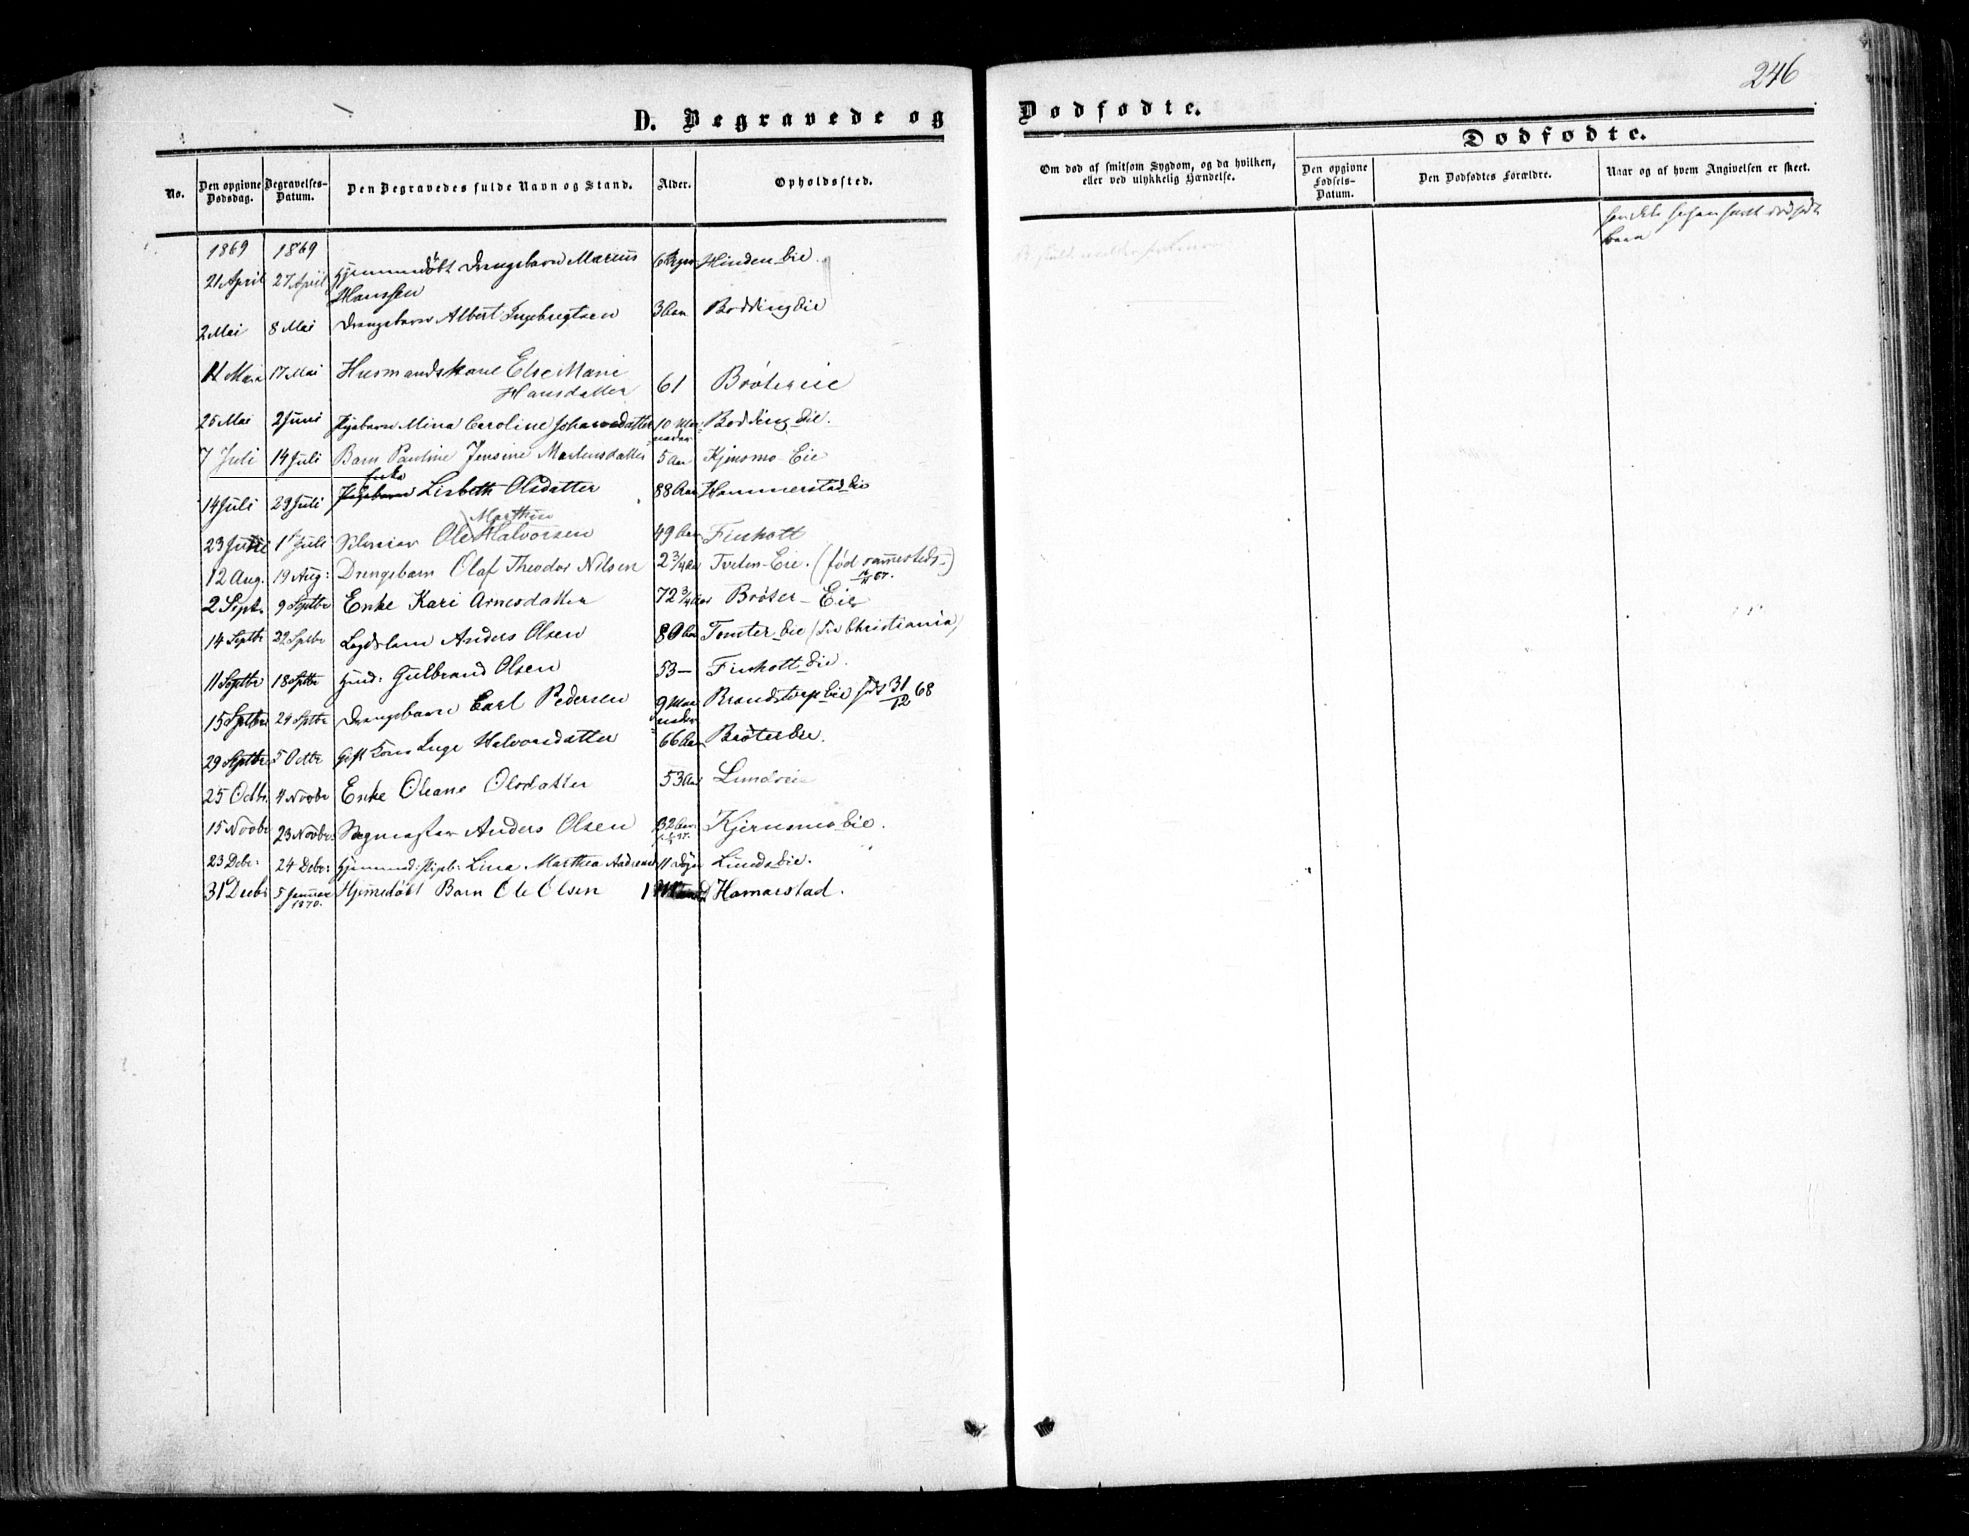 246
D. Begravede og Dødfødte.
Dødfødte.
No.
Den opgivne Dødsdag.
Begravelses-Datum.
Den Begravedes fulde Navn og Stand.
Alder.
Opholdssted.
Om død af smitsom Sygdom, og da hvilken,
eller ved ulykkelig Hændelse.
Den opgivne Fødsels-Datum.
Den Dødfødtes Forældre.
Naar og af hvem Angivelsen er skeet.
1869 1869
21 April 27 April Hjemmedøbt Drengebarn Marius Hinden Eie.
Hanssen
2 Mai 8 Mai Drengebarn Albert Ingebregtsen 3 Aar Bødding Eie
17 Mai Husmandskone Else Marie
Hansdatter 61 Brøter eie
25 Mai 2 Juni Pigebarn Mina Caroline Johannesdatter 10 Maaneder Bødding Eie.
7 Juli 14 Juli Barn Pauline Jensine Martensdatter 5 Aar Kjensmo-Eie
14 Juli 29 Juli Enke Lisbeth Olsdatter 88 Aar Hammerstad Eie
23 1 Juli Ole Marthin Halvorsen 49 Aar Finholt
12 Aug. 19 Aug: Drengebarn Olaf Theodor Nilsen 2 3/4 Aar Tveten-Eie. (fød sammesteds)
2 Sept. 9 Septbr Enke Kari Arnesdatter 72 3/4 Aar Brøter-Eie
14 Septbr 22 Septbr Lægdslem Anders Olsen Tomter Eie (fra Christiania)
11 Septbr 18 Septbr Gulbrand Olsen 53 - Finholt Eie.
15 Septbr 24 Septbr Drengebarn Carl Pedersen 9 Maaneder Brandstorp Eie født 31/12 68
29 Septbr 5 Octbr Gift Kone Inge Halvorsdatter 66 Aar Brøter Eie.
25 Octbr 4 Novbr Enke Oleane Olsdatter 53 Aar Lundeie
15 Novbr 23 Novbr: Anders Olsen 32 Aar Kjernsmo Eie.
23 Debr: 24 Debr: Lina Marthea 11 Dage Lunds Eie.
31 Decbr 5 Januar 1870. Hjemedøbt Barn Ole Olsen 1 Hamarstad.